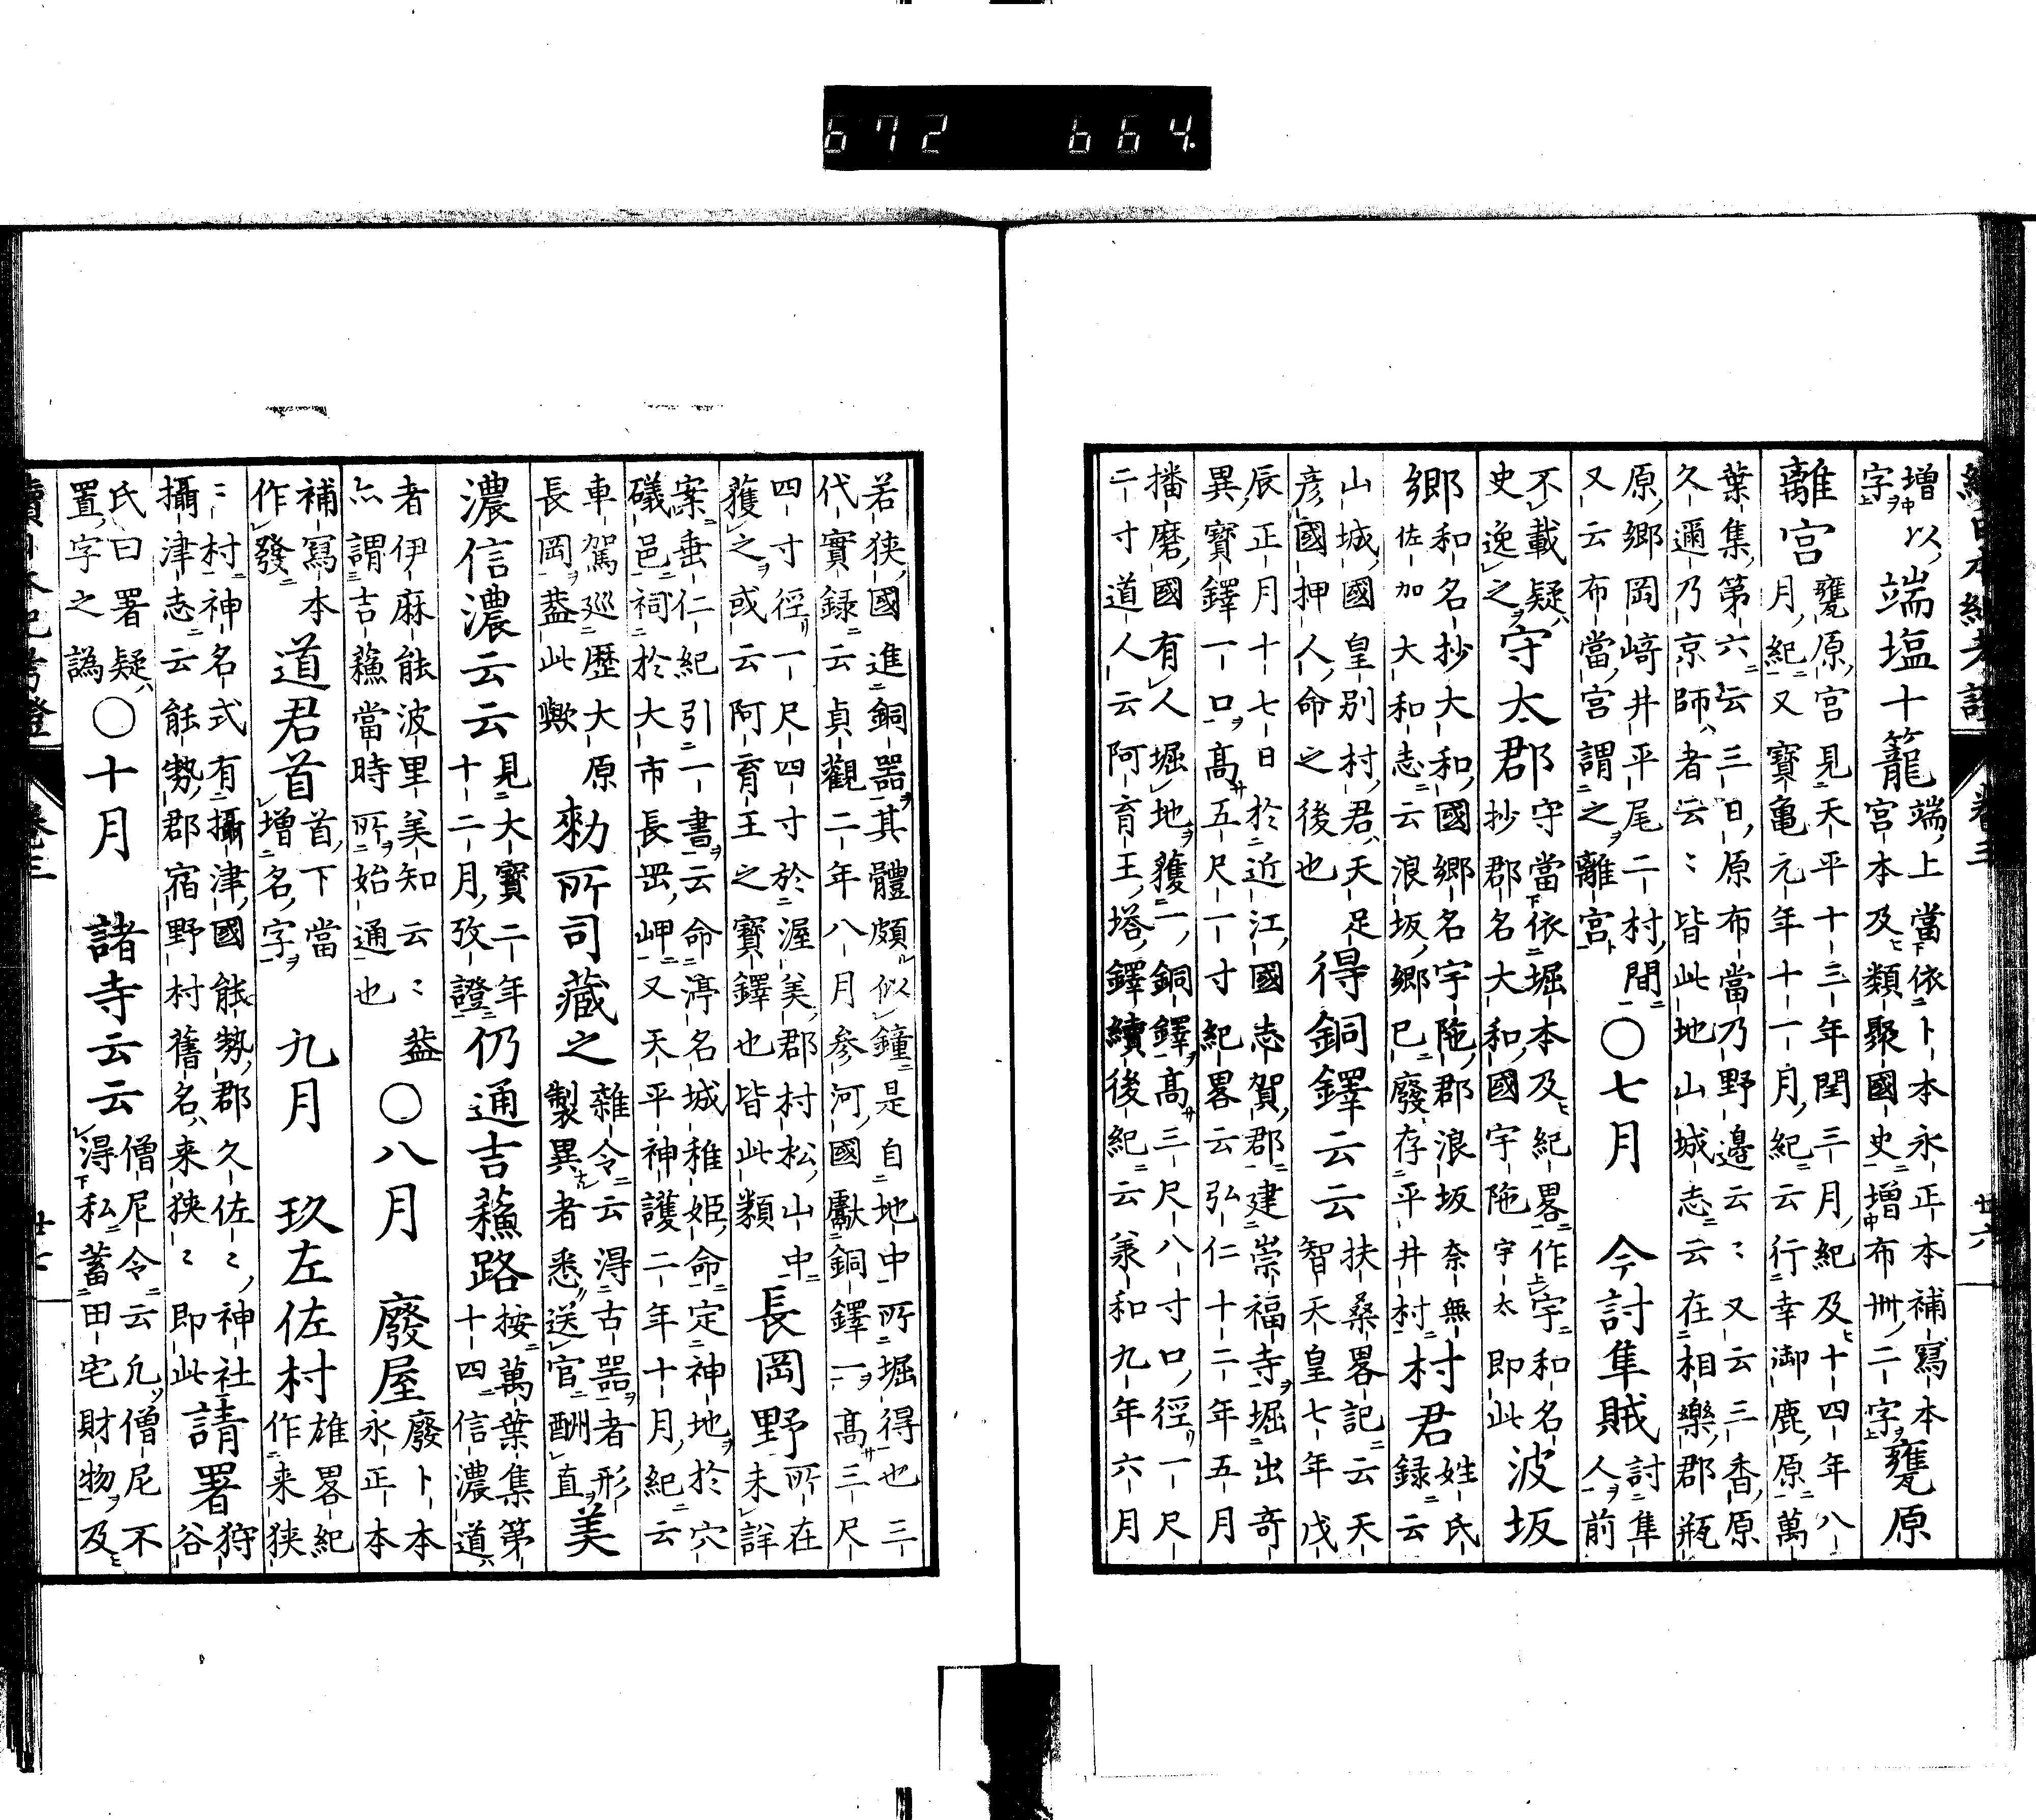 672 664.
增以
字
端塩十籠
端上當依卜本永正本補寫本
宮本及類聚國史増布卌二字
甕原
離宮
甕原宮見天平十三年閏三月紀及十四年八
月紀又寶亀元年十一月紀云行幸御鹿原萬
葉集第六云三日原布當乃野邉云〻又云三香原
久邇乃京師者云〻皆此地山城志云在相樂郡瓶
原郷岡﨑井平尾二村間
又云布當宮謂之離宮
〇七月 今討隼賊
討隼
人前
不載疑
史逸之
守太郡
守當依堀本及紀畧作宇和名
抄郡名大和國宇陁宇太即此
波坂
郷
和名抄大和國郷名宇陁郡浪坂奈無
佐加大和志云浪坂郷已廢存平井村
村君
姓氏
録云
山城國皇別村君天足
彦國押人命之後也
得銅鐸云云
扶桑畧記云天
智天皇七年戊
辰正月十七日於近江國志賀郡建崇福寺堀出奇
異寶鐸一口高五尺一寸紀畧云弘仁十二年五月
播磨國有人堀地獲一銅鐸高三尺八寸口徑一尺
二寸道人云阿育王塔鐸續後紀云羕和九年六月
若狭國進銅器其體頗似鐘是自地中所堀得也三
代實録云貞觀二年八月參河國獻銅鐸一高三尺
四寸徑一尺四寸於渥美郡村松山中
獲之或云阿育王之寶鐸也皆此類
長岡野
所在
未詳
案垂仁紀引一書云命渟名城稚姫命定神地於穴
礒邑祠於大市長岡岬又天平神護二年十月紀云
車駕巡歴大原
長岡葢此歟
勑所司藏之
雜令云得古器者形
製異者悉送官酬直
美
濃信濃云云
見大寶二年
十二月攷證
仍通吉蘓路
按萬葉集第
十四信濃道
者伊麻能波里美知云〻葢
亦謂吉蘓當時所始通也
〇八月 廢屋
廢卜本
永正本
補寫本
作發
道君首
首下當
増名字
九月 玖左佐村
雄畧紀
作来狭
〻村神名式有攝津國能勢郡久佐〻神社
攝津志云能勢郡宿野村舊名来狭〻即此
請署
狩
谷
氏曰署疑
置字之譌
〇十月 諸寺云云
僧尼令云凢僧尼不
得私蓄田宅財物及